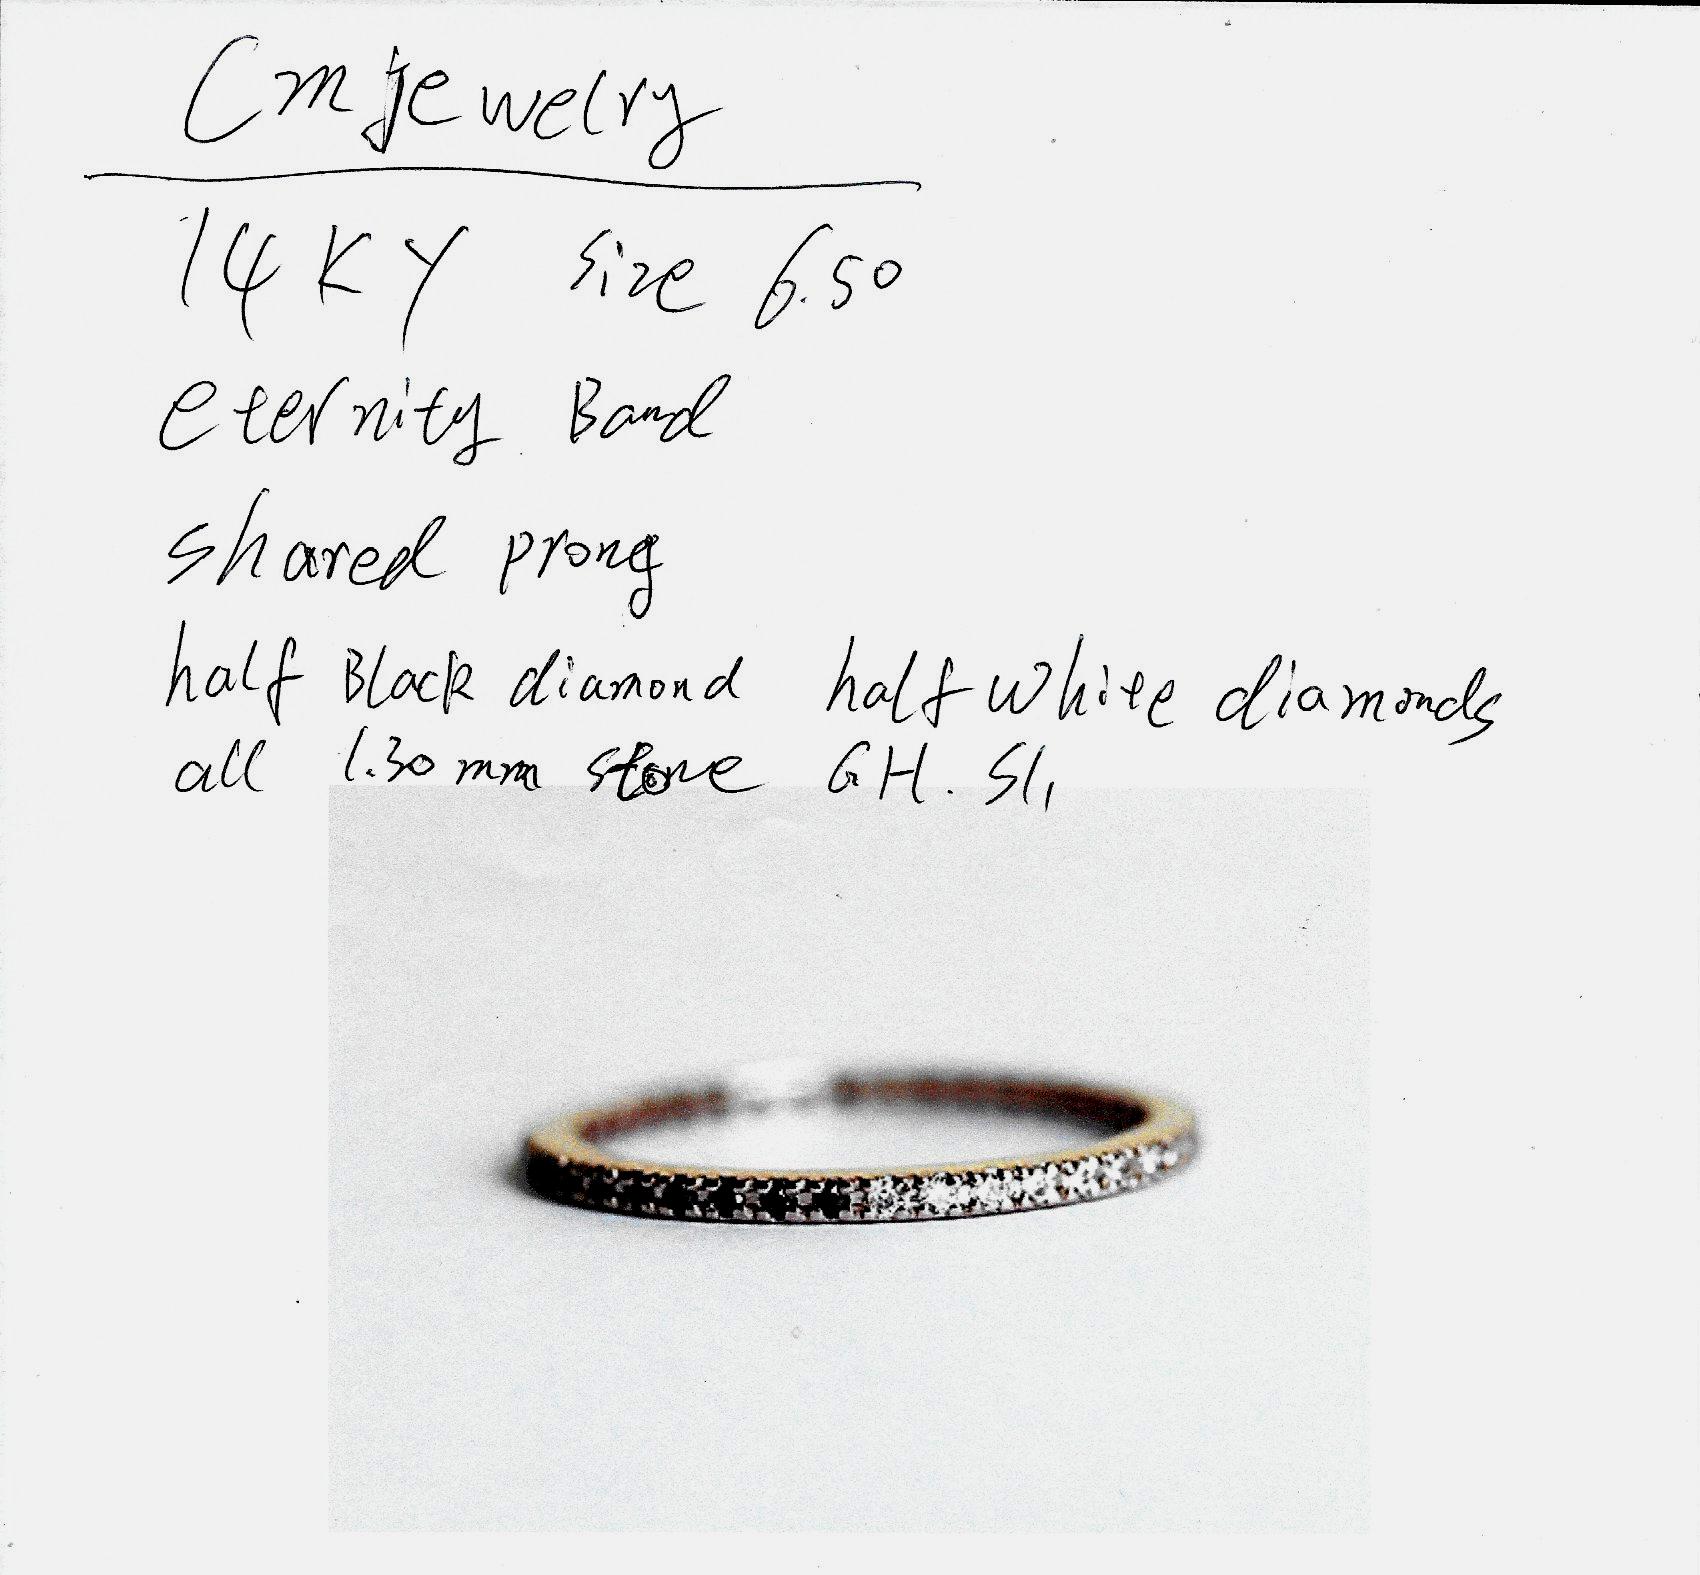 Cmjewelry
14KY size 6.50
eternity Band
shared prong
half Black diamond half white diamonds
all 1.30 mm stone GH. SI1